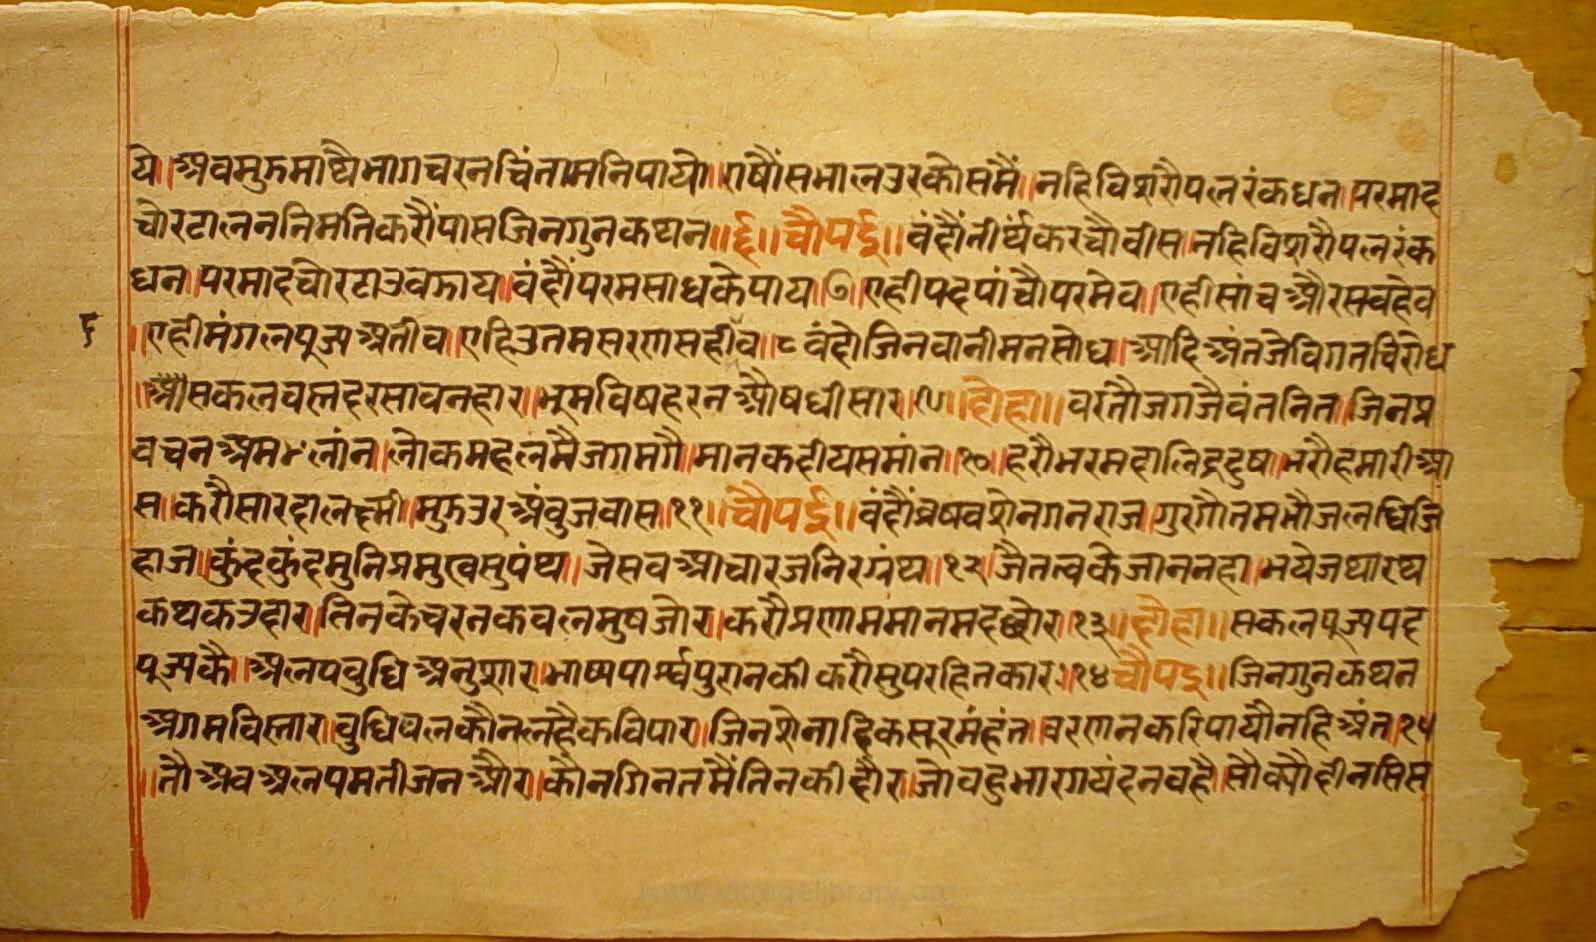 ये॥अवमुझमाथैभागचरनचिंतामनिपायो॥राषौंसमालउरकोसमैं॥नहिविशरौपलरंकधन॥परमाद
चोरटालननिमतिकरौंपासजिनगुनकथन॥६॥चौपई॥वंदौंतीर्थंकरचौवीस॥नहिविशरौपलरंक
धन॥परमादचोरटाउवझाय॥वंदौंपरमसाधकेपाय॥७॥एहीपदपांचौपरमेव॥एहीसांचऔरसवहेव
६
॥एहीमंगलपूज्यअतीव॥एहिउतमसरणसदीव॥८वंदोजिनवानीमनसोध॥आदिअंतजेविगतविरोध
॥औसकलवस्तदरसावनहार॥भ्रमविषहरनऔषधीसार॥९॥दोहा॥वरतौजगजैवंतनित॥जिनप्र
वचनअमलांन॥लोकमहलमैजगमगै॥मानकदीयसमांन॥१०॥हरौभरमदालिद्रदुष॥भरौहमारीआ
स॥करौसारदालक्ष्मी॥मुझउरअंवुजवास॥११॥चौपई॥वंदौंव्रषवशेनगनराज॥गुरगौतमभौजलधिजि
हाज॥कुंदकुंदमुनिप्रमुखसुपंथ॥जेसवआचारजनिरग्रंथ॥१२॥जैतत्वकेजाननहा॥भयेजथारथ
कथकउदार॥तिनकेचरनकवलमुषजोर॥करौप्रणाममानमदछोर॥१३॥दोहा॥सकलपूज्यपद
पूज्यकै॥अलपवुधिअनुशार॥भाष्यपार्श्वपुरानकीकरौसुपरहितकार॥१४चौपइ॥जिनगुनकथन
अगमविस्तार॥वुधिवलकौनलहैकविपार॥जिनशेनादिकसूरमंहंत॥वरणनकरिपायौनहिअंत॥१५
॥तौअवअलपमतीजनऔर॥कौनगिनतमैंतिनकीदौर॥जोवहुभारगयंदनवहै॥सोक्यौहीनससि